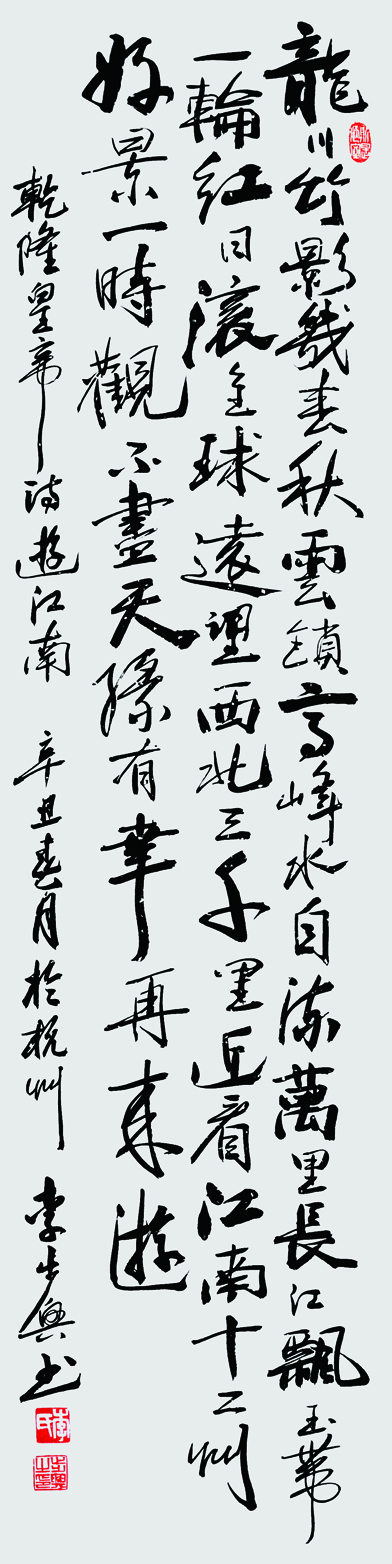 龍川竹影幾春秋雲鎖高峰水自流萬里長江飄玉帶
一輪紅日滾金球遠望西北三千里近看江南十二州
好景一時觀不盡天緣有幸再來遊
乾隆皇帝詩遊江南 辛丑春月於杭州 李步興书
李氏